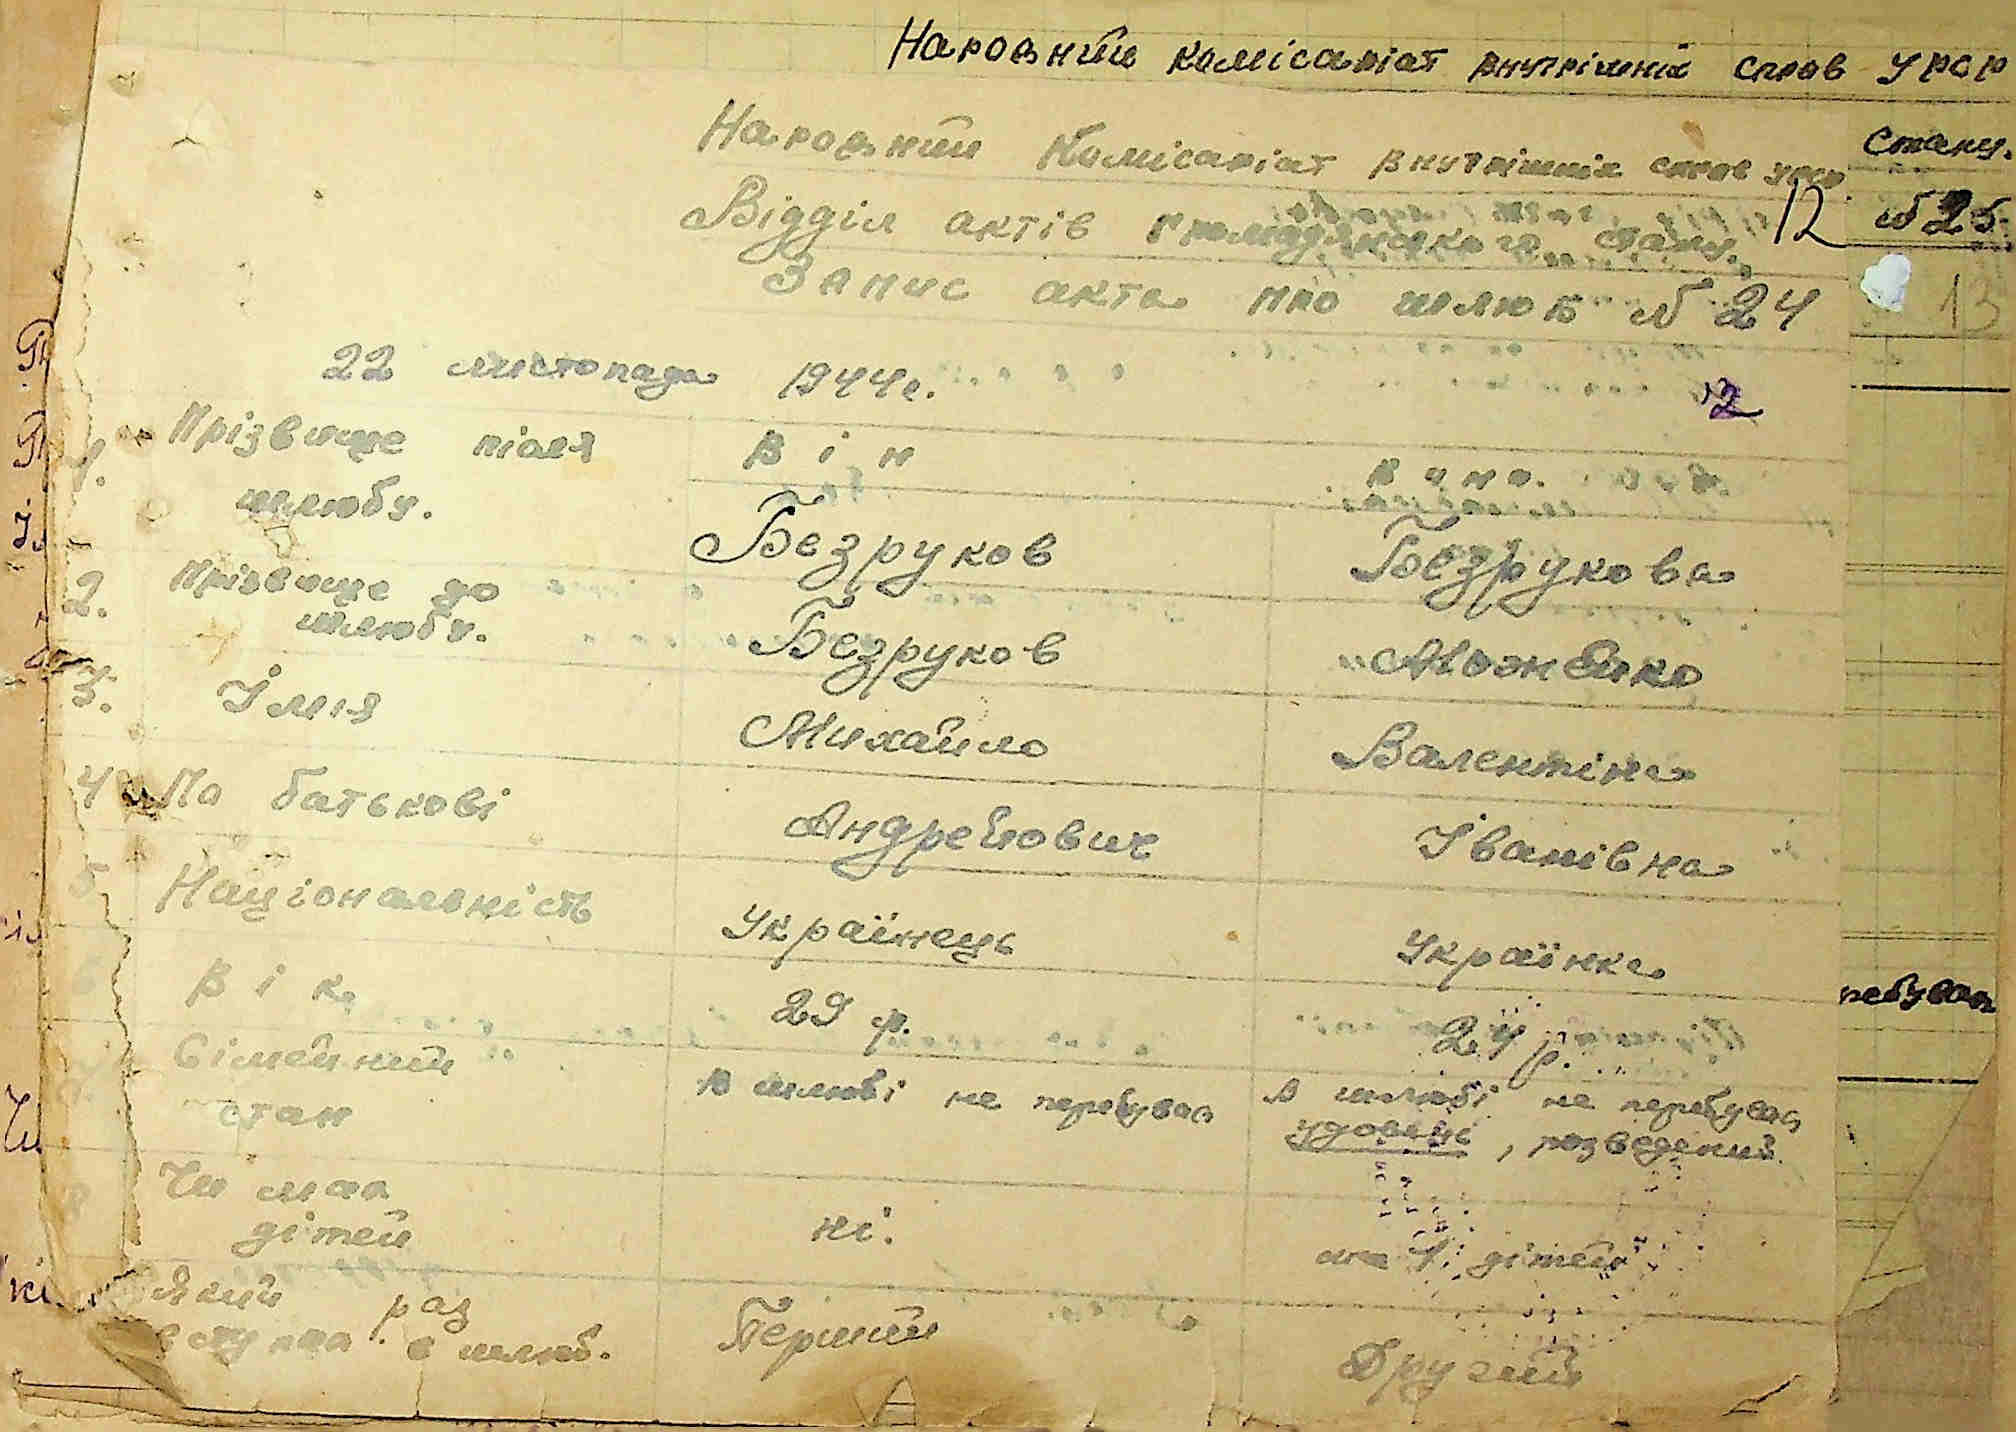 Народний комісаріат внутрішніх справ УРСР
Стану.
Народний Комісаріат внутрішніх справ УРСР
Відділ актів громадянського стану.
12
№ 25.
Запис акта про шлюб № 24
13
22 листопада 1944 г.
12
1. Прізвище після шлюбу.
Він
Вона.
Безруков
Безрукова
2. Прізвище до шлюбу.
Безруков
3. Імия
Михайло
Валентіна
4 По батькові
Андрейович
Іванівна
5 Національність
Українець
Українка
6 Вік
29 р.
24 р.
Сімейний стан
В шлюбі не перебуває
В шлюбі не перебуває
удовець, розведений.
Чи має дітей
ні.
1 дітей
Який раз
вступає в шлюб.
Перший
Другий